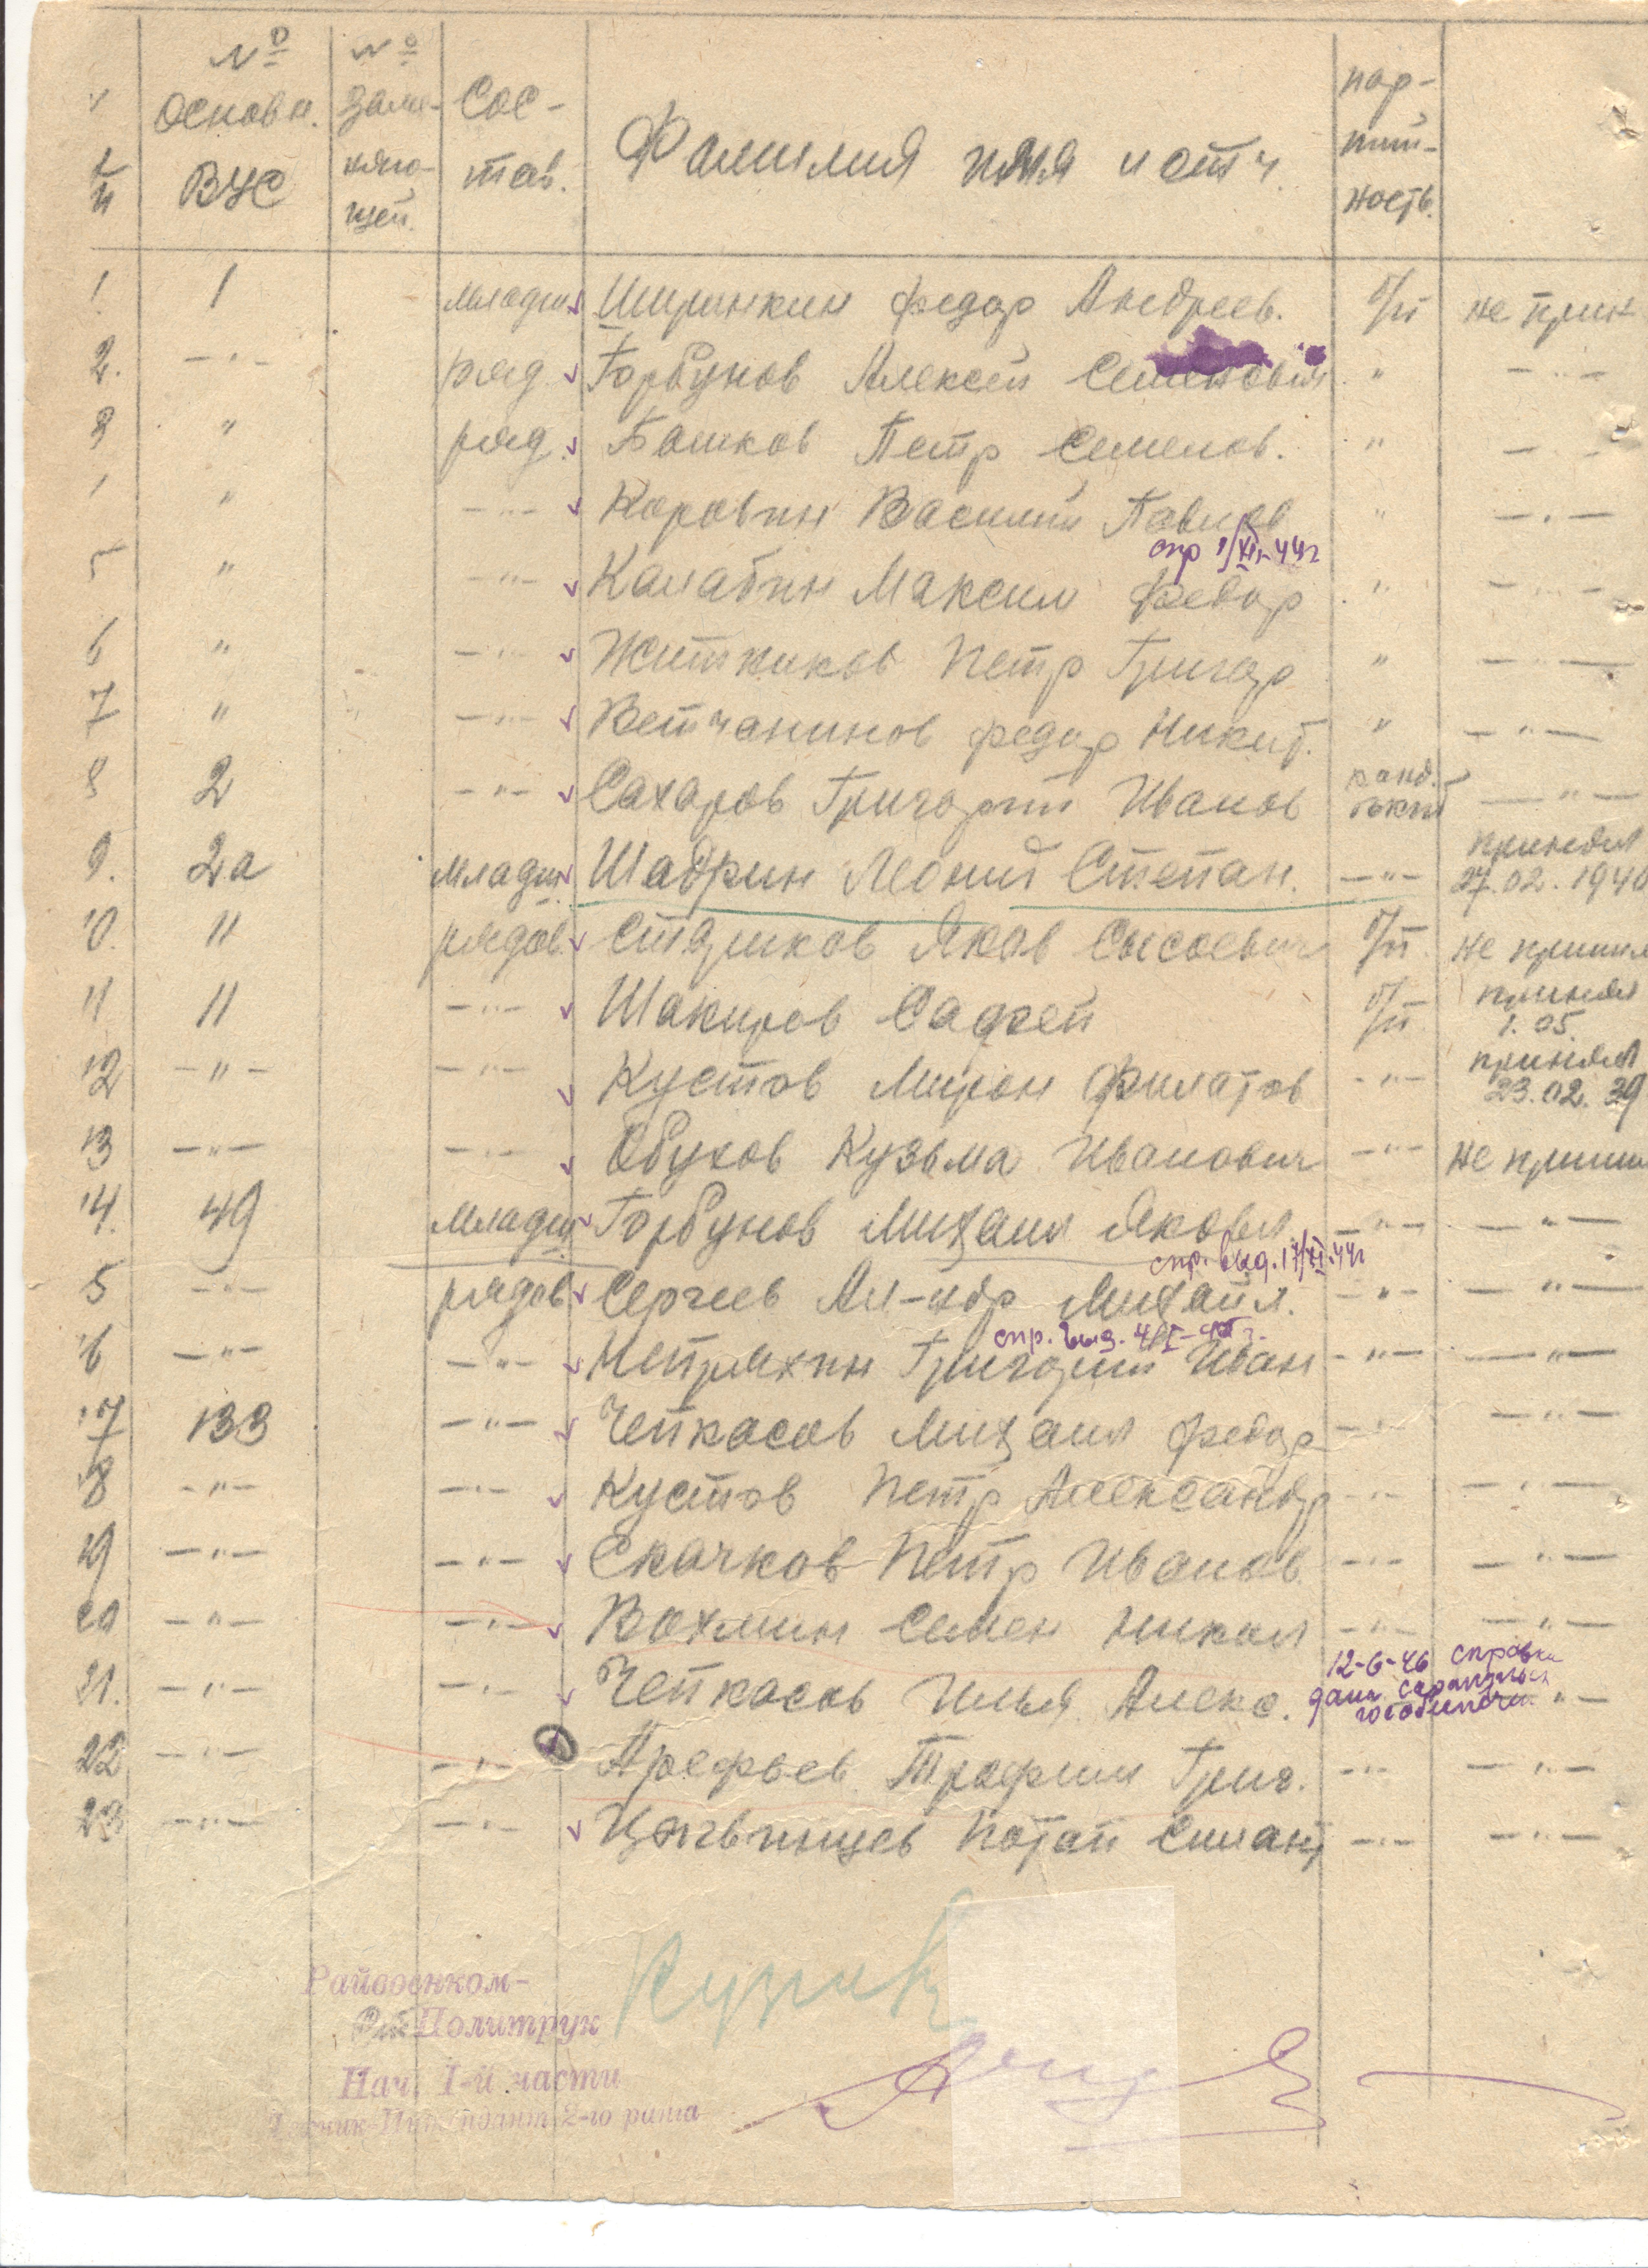 № п/п № основн. ВУС № заме-няю-щей. Сос-тав. Фамилия имя и отч. пар-тий-ность.
1 1 младш. Ширинкин Федор Андреев. б/п не прин
2. —"— ряд. Горбунов Алексей Семенович " —"—
3 " ряд. Башков Петр Семенов. " —"—
" —"— Коровин Василий Павлов " —"—
спр 1/XII-44г
5 " —"— Калабин Максим Федор " —"—
6 " —"— Житников Петр Григор " —"—
7 " —"— Ветчанинов Федор Никит. " —"—
8 2 —"— Сахаров Григорий Иванов канд. —"—
9. 2а младш. Шадрин Леонид Степан. —"— принял 27.02.1940
10. 11 рядов. Старков Яков Сысоевич б/п не принял
11 11 —"— Шакиров б/п принял 1.05.
12 —"— —"— Кустов Мирон Филатов —"— принял 23.02.39
13 —"— —"— Обухов Кузьма Иванович —"— не приним
14. 49 младш. Горбунов Михаил Яковл. —"— —"—
спр. выд. 17/XI-44г
5 —"— рядов Сергеев Ал-ндр Михайл. —"— —"—
спр. выд.
16 —"— —"— Непряхин Григорий Иван —"— —"—
17 133 —"— Чепкасов Михаил Федор —"— —"—
18 —"— —"— Кустов Петр Александр —"— —"—
19 —"— —"— Скачков Петр Иванов —"— —"—
20 —"— —"— Вахмин Семен Никол —"— —"—
12-6-46 справка
21. —"— —"— Чепкасов Илья Алекс. дана —"—
22 —"— —"— Арефьев Трофим Григ. —"— —"—
23 —"— —"— Потап Силант —"— —"—
Райвоенком-
Политрук
Нач. 1-й части
Техник-Интендант 2-го ранга